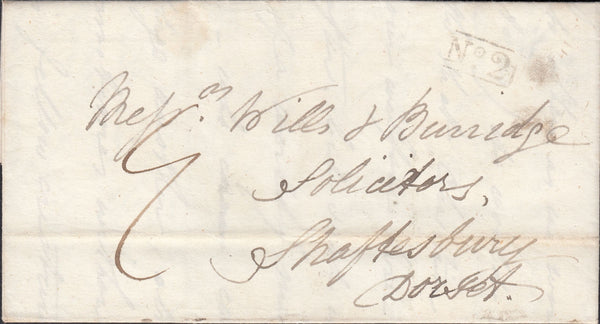 No. 2
Messrs. Wills & Burridge
7
Solicitors,
Shaftesbury
Dorset.